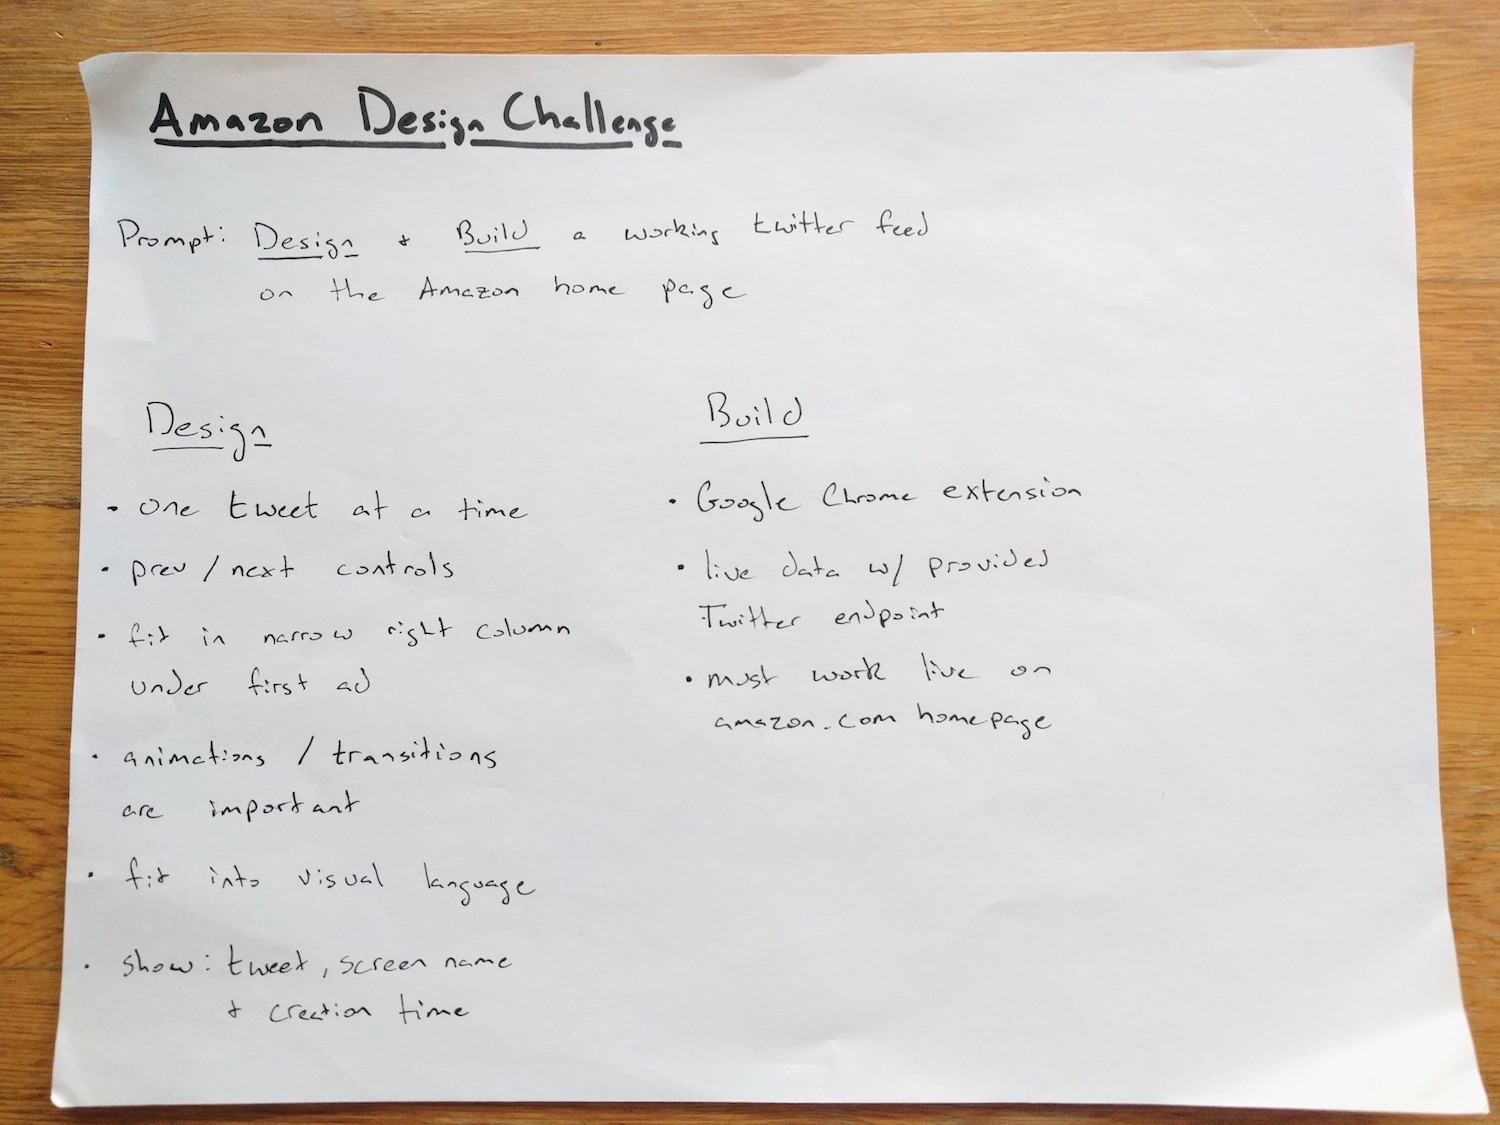 Amazon Design Challenge
Prompt: Design + Build a working twitter feed
on the Amazon home page
Design
• one tweet at a time
• prev / next controls
• fit in narrow right column
under first ad
• animations / transitions
are important
• fit into visual language
• show: tweet, screen name
+ creation time
Build
• Google Chrome extension
• live data w/ provided
Twitter endpoint
• must work live on
amazon.com homepage